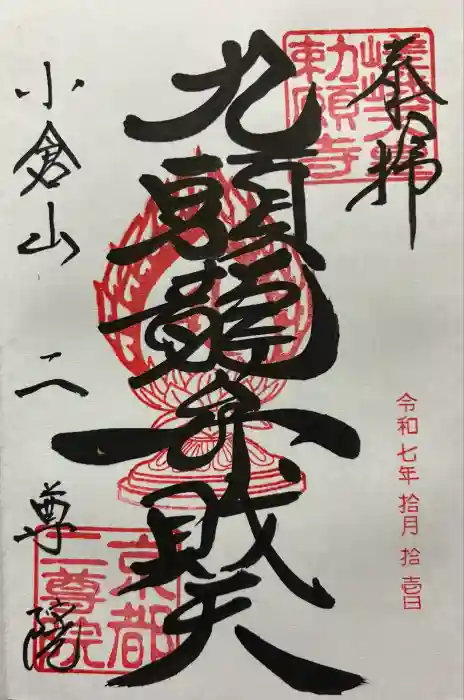 奉拝
嵯峨天皇
勅願寺
令和七年拾月拾壱日
九頭龍弁財天
小倉山二尊院
京都
二尊院